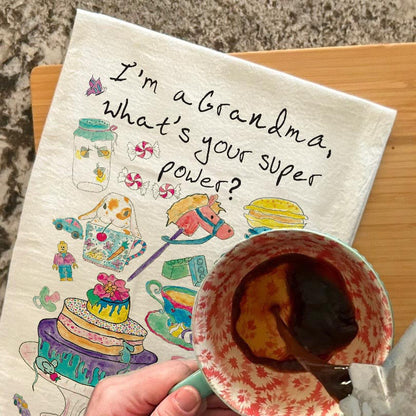 I'm a Grandma,
What's your super
power?